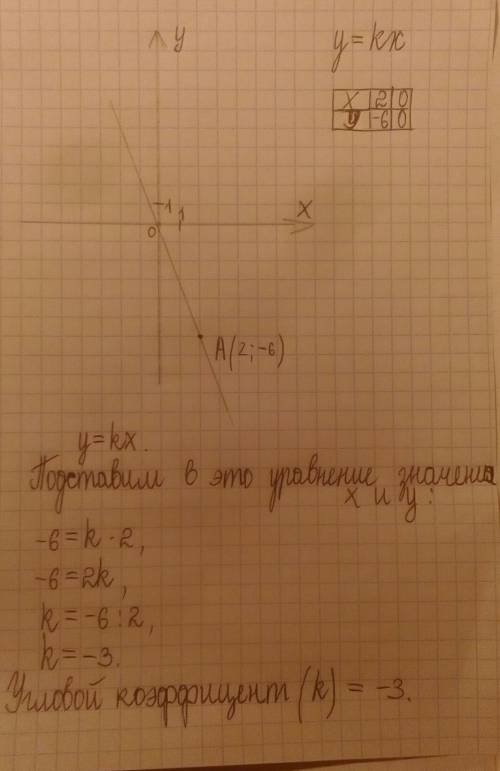 y
y=kx
x 2 0
y -6 0
1 1 x
0
A(2;-6)
y=kx.
Подставим в это уравнение значения
x и y:
-6=k·2,
-6=2k,
k=-6:2,
k=-3.
Угловой коэффицент (k) = -3.